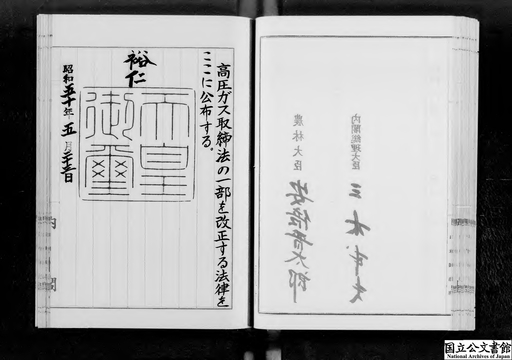 内閣総理大臣
三木武夫
農林大臣
安倍晋太郎
高圧ガス取締法の一部を改正する法律を
ここに公布する。
裕仁
天皇
御璽
昭和五十年五月二十二日
内閣
国立公文書館
National Archives of Japan